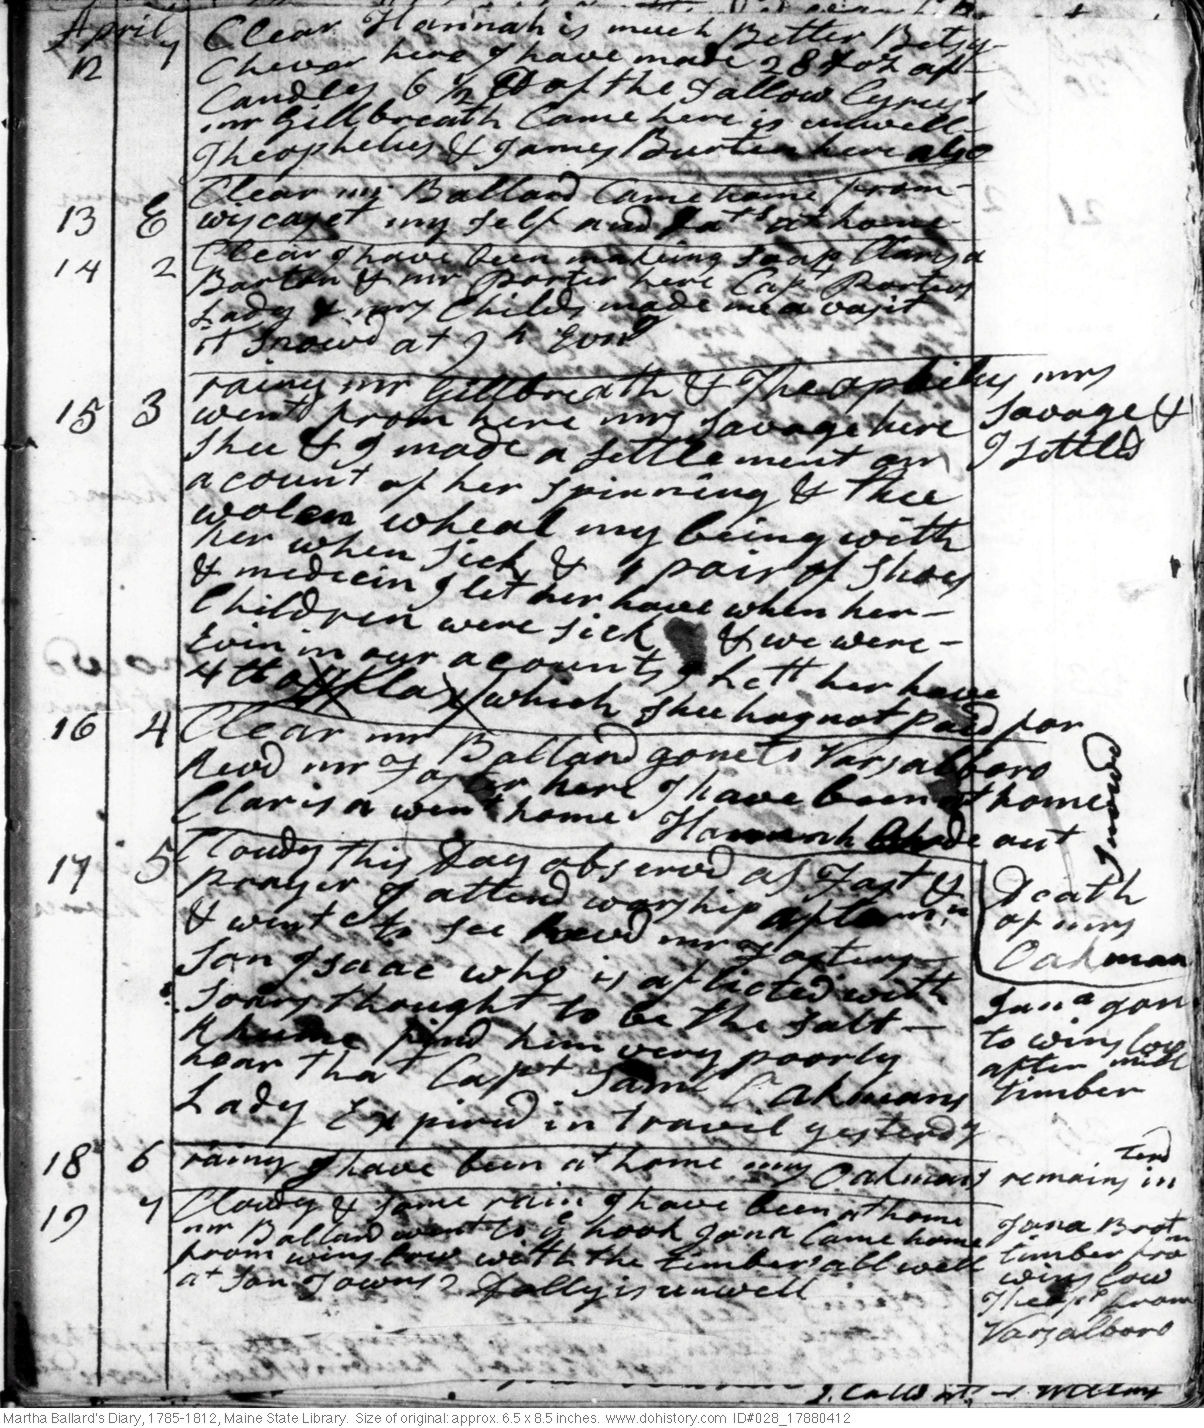 April
12 7 Clear Hannah is much Better Betsy
Chever here I have made 28 doz of
Candles 6 1/2 lb of the Tallow Cyrus's
mr Gillbreath Came here is unwell
Theophelus & James Burten here also
13 E Clear mr Ballard Came home from
wiscaset my self and at home
14 2 Clear I have been making soap Clarisa
Barton & mr Porter here Capt Porters
Lady & mrs Childs made me a vasit
it snowd at 9 h Evng
15 3 rainy mr Gillbreath & Theophelus
went from here mrs Savage here
Shee & I made a settlement on
acount of her spinning & thee
wolen wheal my being with
her when sick & 1 pair of Shoes
& medicin I let her have when her
Children were sick & we were
Evin in our acounts I lett her have
4 lb of Flax which shee has not paid for
mrs
Savage &
I settled
16 4 Clear mr Ballard gone to Varsalboro
Revd mr Foster here I have been at home
Clarisa went home Hannah rhode out
Snowd
17 5 Cloudy this Day observd as Fast &
prayer I attend worship afternn
& went to see Revd mr Fosters
Son Isaac who is aflicted with
Sores thought to be the salt
Rhume find him very poorly
hear that Capt Saml Oakmans
Lady Expired in travil yesterdy
Death
of mrs
Oakman
Jona gon
to winslow
after mill
timber
18 6 rainy I have been at home mrs Oakmans remains interd
19 7 Cloudy & some rain I have been at home
mr Ballard went to ye hook Jona Came home
from winslow with the timber all well
at Son Towns Dolly is unwell
Jona Brot
timber fro
winslow
Theops from
Varsalboro
Martha Ballard's Diary, 1785-1812, Maine State Library. Size of original: approx. 6.5 x 8.5 inches. www.dohistory.com ID#028_17880412